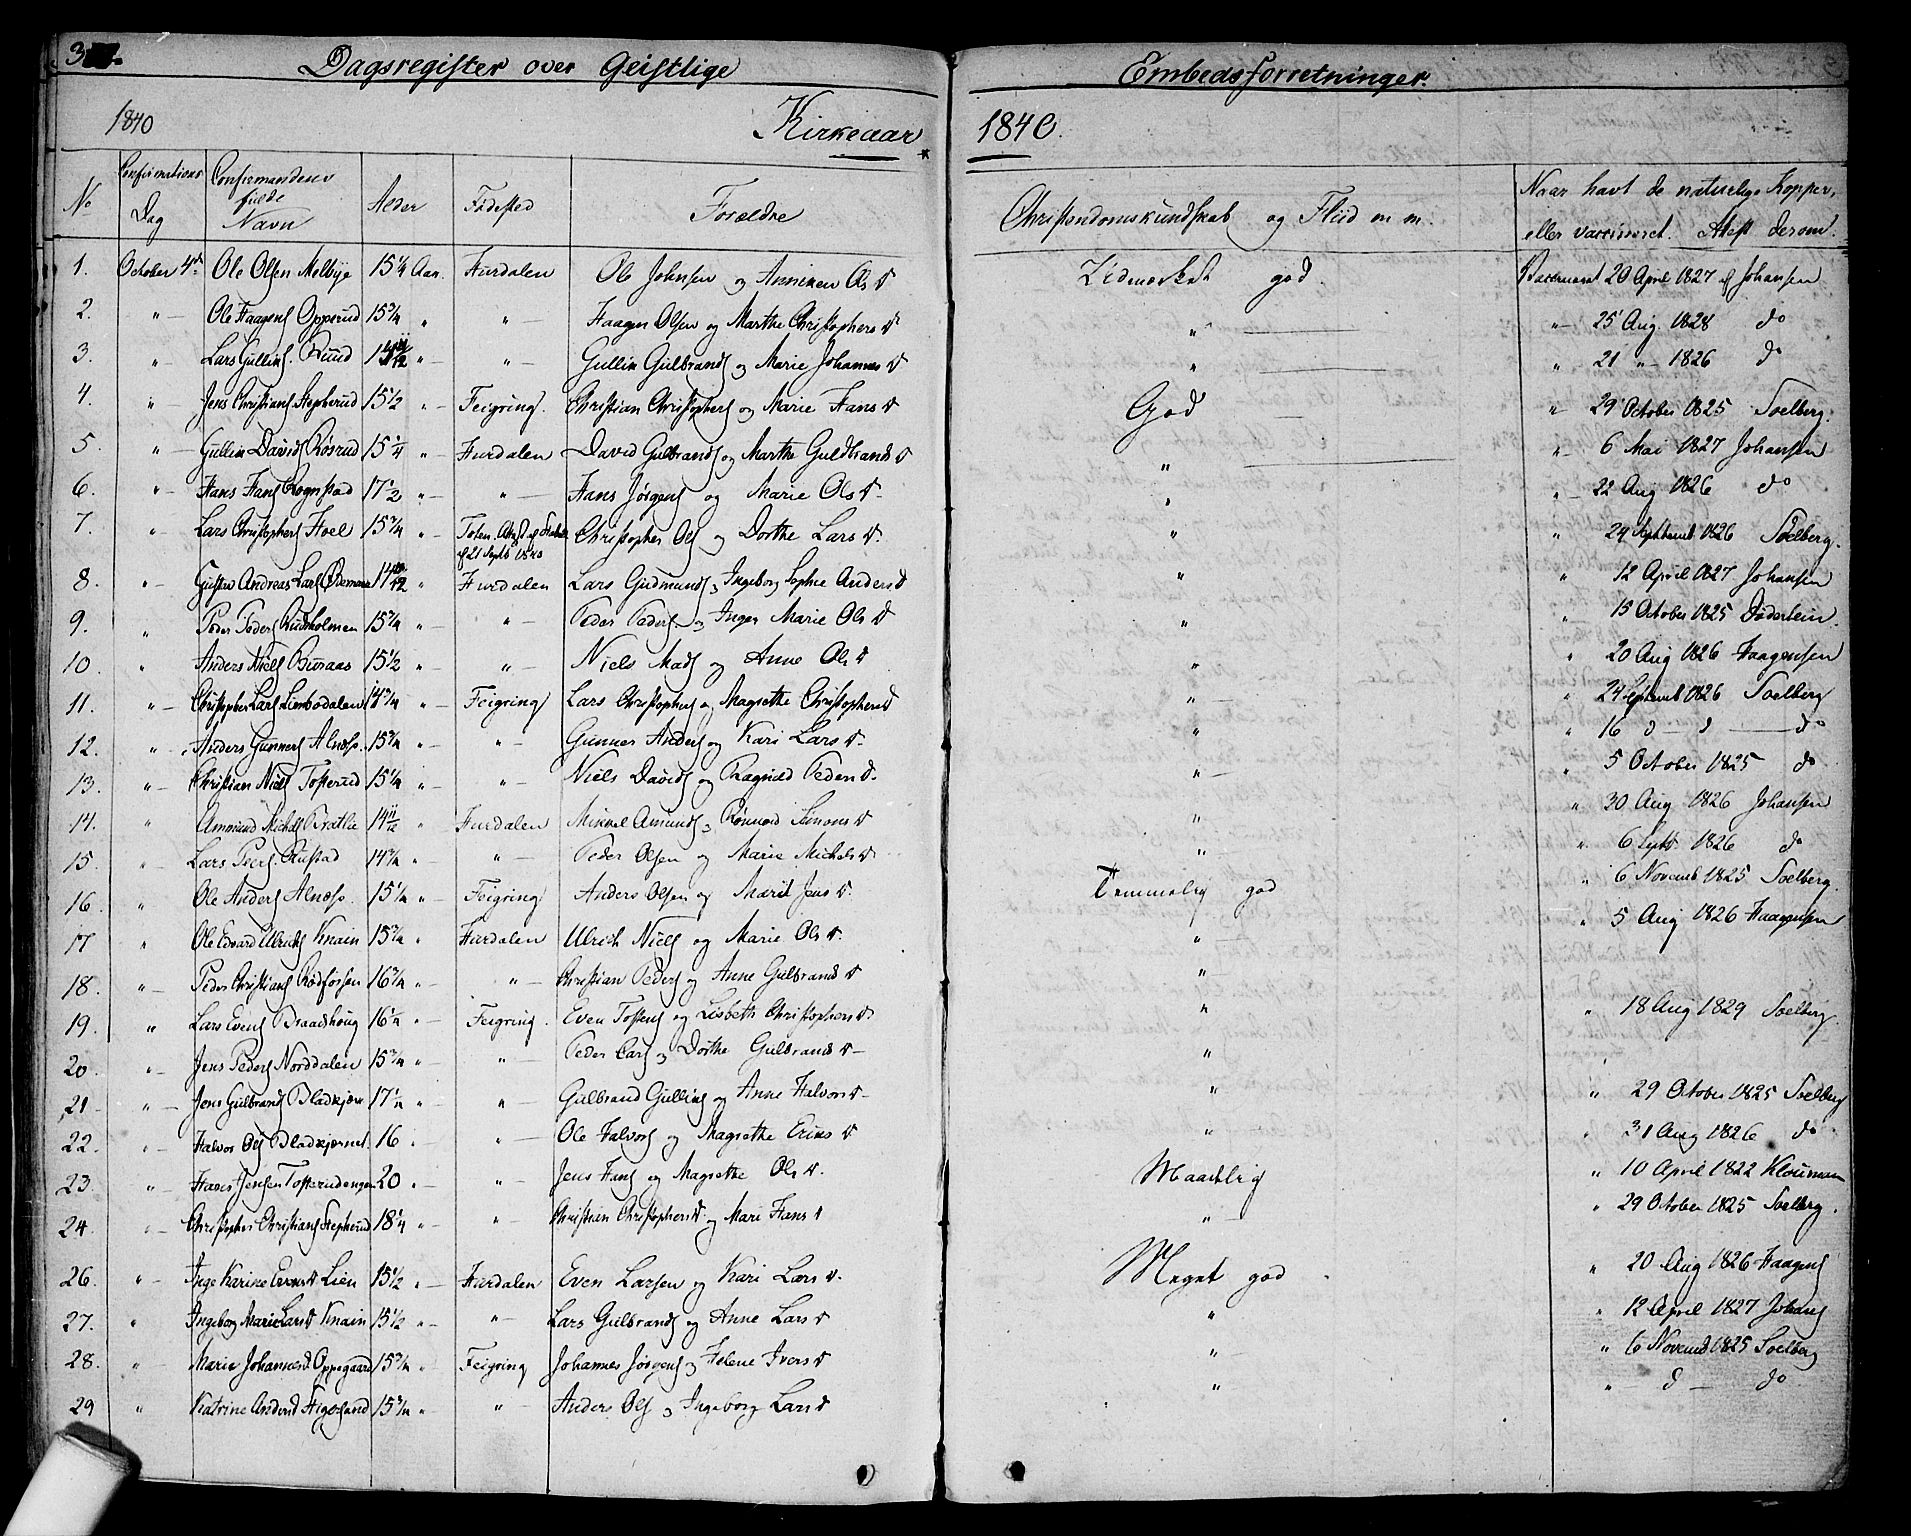 Dagsregister over Geistlige Embedsforretninger.
1840 Kirkeaar 1840.
No Confirmations Dag Confirmandens fulde Navn Alder Fødested Forældre Christendomskundskab og Fliid m. m. Naar havt de naturlige Kopper, eller vaccineret. Attest derom.
1. October 4de Ole Olsen Melbye 15 1/4 Aar. Hurdalen Ole Johnsen og Anniken Ols D. Udmærket god. Vaccineret 20 April 1827 af Johansen
2. " Ole Haagens Opperud 15 3/4 " " Haagen Olsen og Marthe Christophers D " " 25 Aug. 1828 do
3. " Lars Gullins. Ruud 14 11/12 " " Gullin Gulbrands og Marie Johannes D " " 21 " 1826 do
4. " Jens Christians Stepherud 15 1/2 " Feigring. Christian Christophers og Marie Hans D God " 29 October 1825 Soelberg.
5. " Gullin Davids Røsrud 15 1/4 " Hurdalen David Gulbrands og Marthe Guldbrands D " " 6 Mai 1827 Johansen
6. " Hans Hans Rognstad 17 1/2 " " Hans Jørgens og Marie Ols D " " 22 Aug 1826 do
7. " Lars Christophers Hoel 15 3/4 " Toten Christopher Ols og Dorthe Lars D. " 24 Septemb 1826 Soelberg.
af 21 Septb 1840
8. " Gustav Andreas Lars " Hurdalen Lars Gudmunds og Ingeborg Sophie Anders D " " 12 April 1827 Johansen
9. " Peder Peders Rudsholmen 15 3/4 " " Peder Peders. og Inger Marie Ols D " " 15 October 1825 Døderlein.
10. " Anders Niels Buraas 15 1/2 " " Niels Mads og Anne Ols D " " 20 Aug 1826 Haagensen
11. " Christopher Lars Limbodalen 14 3/4 " Feigring Lars Christophers og Magrethe Christophers D " " 24 Septemb 1826 Soelberg
12. " Anders Gunners Alnæss. 15 3/4 " " Gunner Anders og Kari Lars D. " " 16 d d do
13. " Christian Niels Tosterud 15 1/4 " " Niels Davids og Ragnild Peders D. " " 5 October 1825 do
14. " Ammund Michels Bratlie 14 11/12 " Hurdalen Mikkel Amunds og Rønnoud Simons D " " 30 Aug 1826 Johansen
15. " Lars Peers. Rustad 14 3/4 " " Peder Olsen og Marie Michels D " " 6 Septb. 1826 do
16. " Ole Anders Alnæss. 15 1/4 " Feigring Anders Olsen og Marit Jens D. Temmelig god " 6 Novemb 1825 Soelberg.
17 " Ole Edvard Ulrichs Knain 15 3/4 " Hurdalen Ulrich Niels og Marie Ols D. " " 5 Aug 1826 Haagensen
18. " Peder Christians Rødfossen 16 3/4 " " Christian Peders og Anne Gulbrands D "
19. " Lars Evens Braadhoug 16 1/4 " Feigring. Even Tostens og Lisbeth Christophers D. " " 18 Aug 1829 Soelberg.
20. " Jens Peders Norddalen 15 3/4 " " Peder Lars og Dorthe Gulbrands D " "
21 " Jens Gulbrands Bladkjern 17 1/4 " " Gulbrand Gullins og Anne Halvors D " " 29 October 1825 Soelberg
22. " Halvor Ols Bladkjernet. 16 " " Ole Halvors og Magrethe Eriks D " " 31 Aug 1826 do
23. " Hans Jensen Tosterudengen 20 " " Jens Hans og Magrethe Ols D. Maadelig " 10 April 1822 Klouman
24. " Christopher Christians Stepherud 18 1/4 " " Christian Christophers og Mari Hans D " " 29 October 1825 Soelberg.
26. " Inge Karine Evens D Lien 15 1/2 " Hurdalen Even Larsen og Kari Lars D. Meget god " 20 Aug 1826 Haagens
27. " Ingeborg Marie Lars D Knain 15 1/2 " " Lars Gulbrands og Anne Lars D " " 12 April 1827 Johans
28. " Marie Johannes D Oppegaard 15 3/4 " Feigring Johannes Jørgens og Helene Ivers D " " 6 Novemb 1825 Soelberg
29 " Katrine Anders D 15 3/4 " " Anders Ols og Ingeborg Lars D " " d do